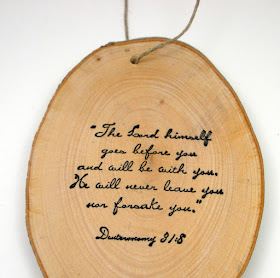 "The Lord himself
goes before you
and will be with you.
He will never leave you
nor forsake you."
Deuteronomy 31:8